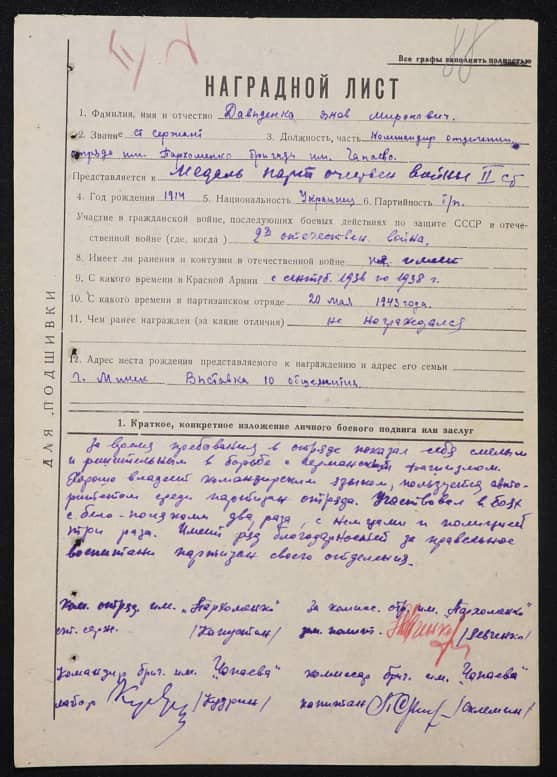 Все графы заполнять полностью
НАГРАДНОЙ ЛИСТ
1. Фамилия, имя и отчество Давыденка Яков Миронович.
2. Звание ст сержант 3. Должность, часть Командир отделения
отряда им. Пархоменко бригады им. Чапаева.
Представляется к Медаль парт отечествен войны II ст
4. Год рождения 1914 5. Национальность Украинец 6. Партийность б/п.
Участие в гражданской войне, последующих боевых действиях по защите СССР и отече-
ственной войне (где, когда) отечествен. война,
8. Имеет ли ранения и контузии в отечественной войне не имеет
9. С какого времени в Красной Армии с сентяб. 1936 по 1938 г.
10. С какого времени в партизанском отряде 20 мая 1943 года.
11. Чем ранее награжден (за какие отличия) не награждался
12. Адрес места рождения представляемого к награждению и адрес его семьи
г. Минск Выставка 10 общежитие
ДЛЯ ПОДШИВКИ
1. Краткое, конкретное изложение личного боевого подвига или заслуг
За время пребывания в отряде показал себя смелым
и решительным в борьбе с германским фашизмом.
Хорошо владеет командирским языком, пользуется авто-
ритетом среди партизан отряда. Участвовал в боях
с бело-поляками два раза, с немцами и полицией
три раза. Имеет ряд благодарностей за правельное
воспитание партизан своего отделения.
Ком. отряда им. „Пархоменко" За комис. отр. им. „Пархоменко"
ст. серж. /Капустин/ зам. полит. /Левченко/
Командир бриг. им. „Чапаева" комиссар бриг. им. „Чапаева"
майор /Кудрин/ капитан